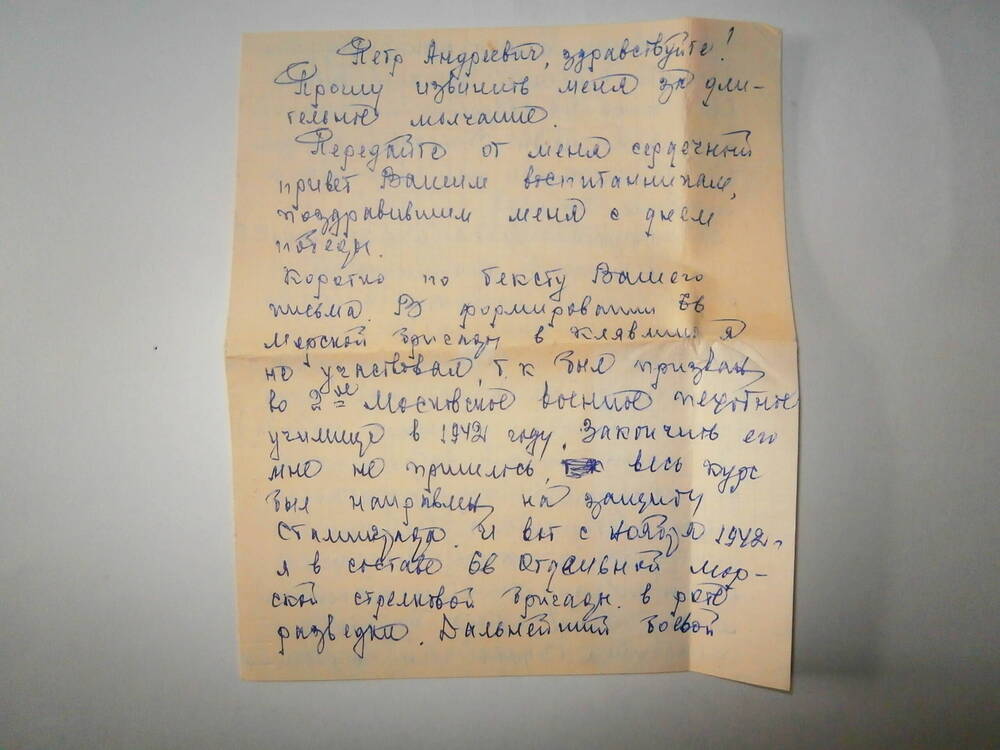 Петр Андреевич, здравствуйте!
Прошу извинить меня за дли-
тельное молчание.
Передайте от меня сердечный
привет Вашим воспитанникам,
поздравившим меня с днем
победы.
Коротко по тексту Вашего
письма. В формировании 66
морской бригады в Клявлино я
не участвовал, т.к был призван
во 2ое Московское военное пехотное
училище в 1942 году. Закончить его
мне не пришлось, весь курс
был направлен на защиту
Сталинграда. И вот с ноября 1942г
я в составе 66 отдельной мор-
ской стрелковой бригады. в роте
разведки. Дальнейший боевой